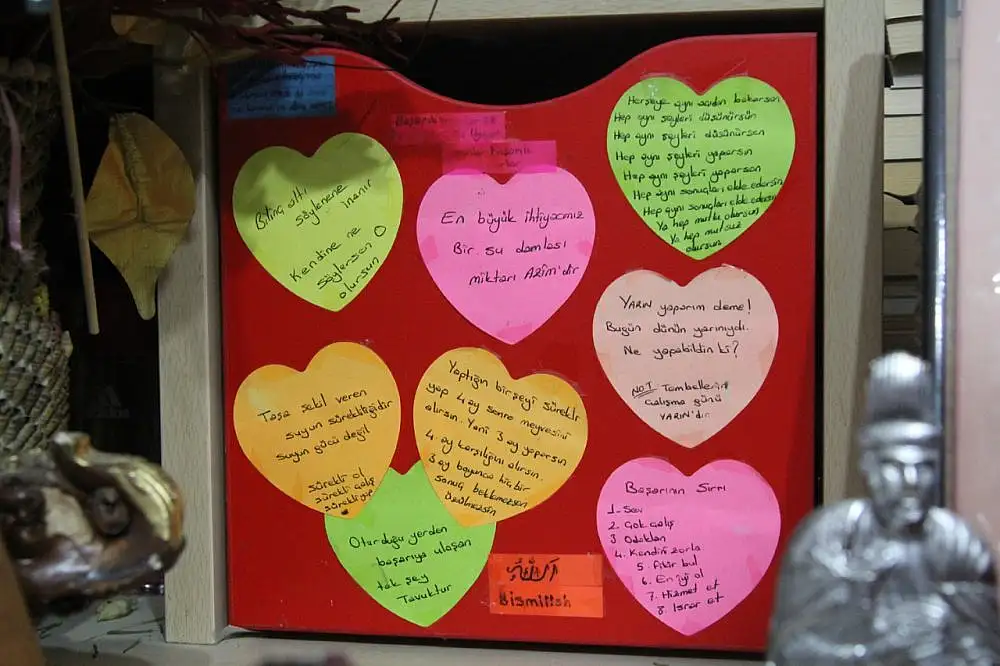 Başarılı
Bilinç altı
söylenene
inanır
Kendine ne
söylersen O
olursun
En büyük ihtiyacımız
Bir su damlası
miktarı AZİM'dir
Herşeye aynı açıdan bakarsan
Hep aynı şeyleri düşünürsün
Hep aynı şeyleri düşünürsen
Hep aynı şeyleri yaparsın
Hep aynı şeyleri yaparsan
Hep aynı sonuçları elde edersin
Hep aynı sonuçları elde edersen
Ya hep mutlu olursun
Ya hep mutsuz
olursun
YARIN yaparım deme!
Bugün dünün yarınıydı.
Ne yapabildin ki?
NOT Tembellerin
Çalışma günü
YARIN'dır
Taşa şekil veren
suyun sürekliliğidir
suyun gücü değil
sürekli ol
sürekli çalış
sürekli yap
Yaptığın bir şeyi sürekli
yap 4 ay sonra meyvesini
alırsın. Yani 3 ay yaparsan
4. ay karşılığını alırsın.
3 ay boyunca hiç bir
sonuç beklemezsen
üzülmezsin
Oturduğu yerden
başarıya ulaşan
tek şey
Tavuktur
Bismillah
Başarının Sırrı
1- Sev
2. Çok çalış
3 Odaklan
4. Kendini zorla
5. Fikir bul
6. En iyi ol
7. Hizmet et
8. Israr et